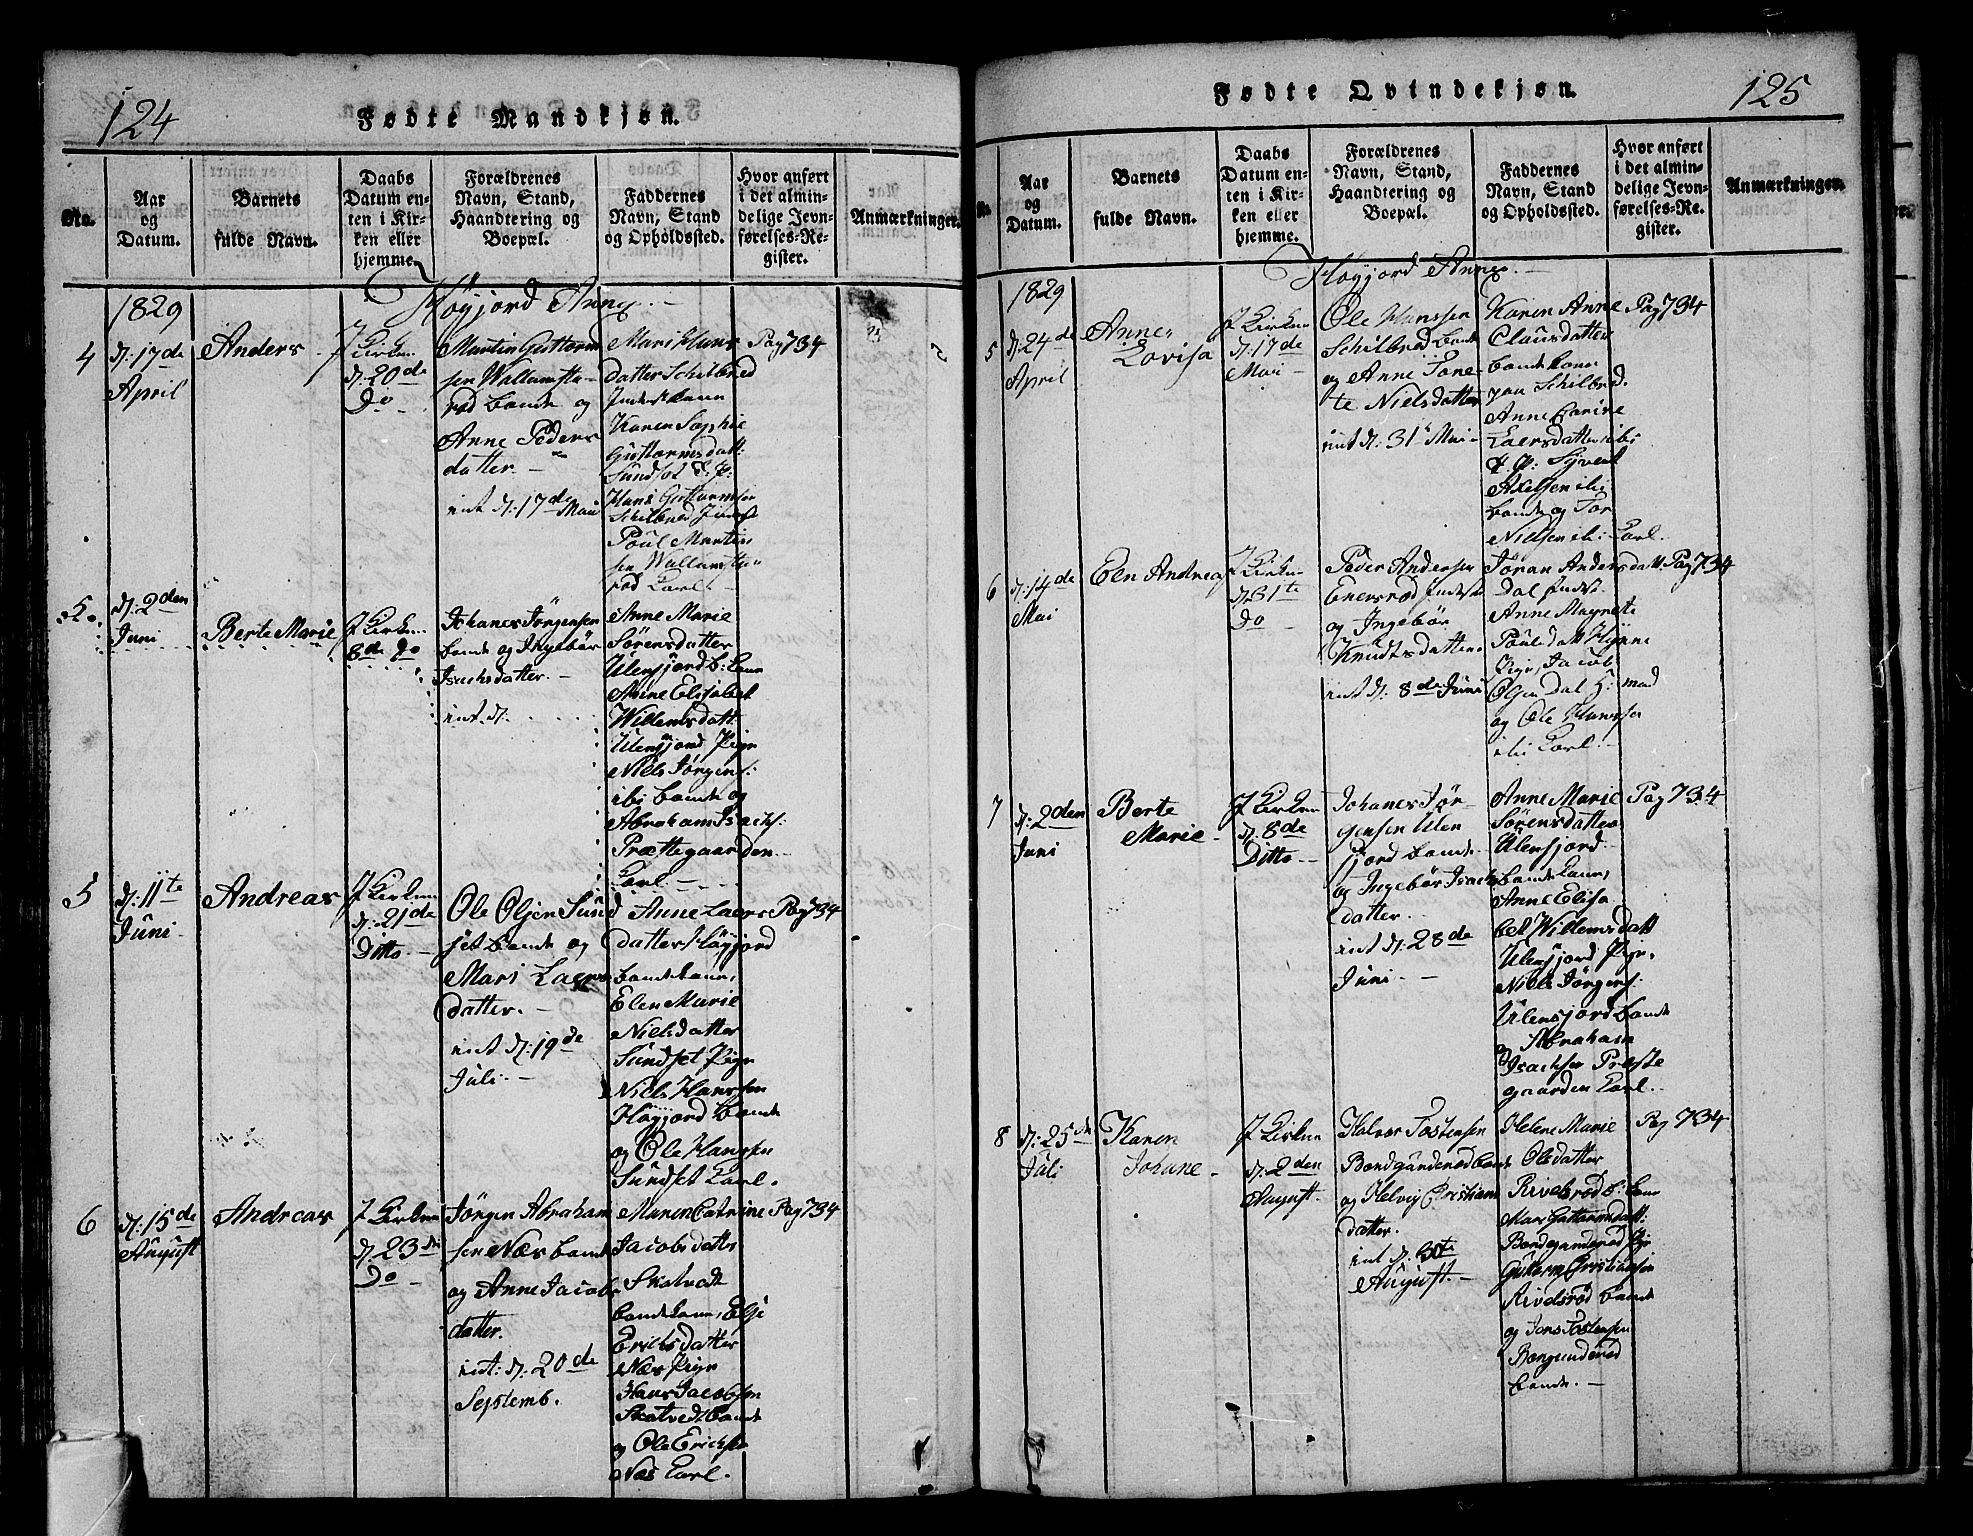 124
Fødte Mandkjøn.
No.
Aar og Datum.
Barnets fulde Navn.
Daabs Datum enten i Kirken eller hjemme.
Forældrenes Navn, Stand, Haandtering og Boepæl.
Faddernes Navn, Stand og Opholdssted.
Hvor anført i det almindelige Jevnførelses-Register.
Anmærkninger.
Høyjord Annex.
1829
4
d: 17de
April
Anders
J Kirken
d: 20de
Do
Martin Guttorm
sen Wallumstu
rød bonde og
Anne Peders
datter.
int d: 17de Mai
Mari Hans
datter Schilbred
Karen Sophie
Guttormsdatt:
Sundset
Hans Guttormsen
Schilbred
Poul Martin
sen Wallumstu
rød Karl.
Pag 734
5.
d: 2den
Juni
Berte Marie
J Kirken
8de do
Johanes Jørgensen
bonde og Ingebør
Isachsdatter.
int. d:
Anne Marie
Sørensdatter
Ulensjord b: kone
Anne Elisabet
Willemsdatt
Ulensjord Pige
Niels Jørgens:
ibi bonde og
Abraham Isachs:
Præstegaarden
Karl.
5
d: 11te
Juni
Andreas
J Kirken
d: 21de
Ditto
Ole Olsen Sund
set bonde og
Mari Laers
datter.
int d: 19de
Juli.
Anne Laers
datter Høyjord
bondekone,
Elen Marie
Nielsdatter
Sundset Pige
Niels Hanssen
Høyjord bonde
og Ole Hanssen
Sundset Karl.
Pag 734
6
d: 15de
August
Andreas
J Kirken
d: 23de
Do
Jørgen Abraham
sen Næs bonde
og Anne Jacobs
datter.
int: d: 20de
Septemb.
Maren Catrine
Jacobsdatter
Skatvedt
bondekone, Elsi
Erichsdatter
Næs Pige
Hans Jacobsen
Skatvedt bonde
og Ole Erichsen
Næs Karl.
Pag 734
Fødte Qvindekjøn.
125
No.
Aar og Datum.
Barnets fulde Navn.
Daabs Datum enten i Kirken eller hjemme.
Forældrenes Navn, Stand, Haandtering og Boepæl.
Faddernes Navn, Stand og Opholdssted.
Hvor anført i det almindelige Jevnførelses-Register.
Anmærkninger.
Høyjord Annex.
1829
5
d: 24de
April
Anne
Lovisa
J Kirken
d: 17de
Mai
Ole Hanssen
Schilbred bonde
og Anne Tone
te Nielsdatter
int d: 31te Mai
Karen Anne
Clausdatter
bondekone
paa Schilbred.
Anne Carine
Laersdatter ibi
Syvert
Axelsen ibi
bonde og Tor
Nielsen ibi Karl.
Pag 734
6
d: 14de
Mai
Elen Andrea
J Kirken
d: 31te
Do
Peder Andersen
Enersrød Inderst
og Ingebør
Knudtsdatter
int d: 8de Juni
Jøran Andersdatt:
Dal Inderst
Anne Magrete
Poulsdatt Hynne
Pige, Jacob
Olsen Dal H: mand
og Ole Hanssen
ibi Karl.
Pag 734
7
d: 2den
Juni
Berte
Marie
J Kirken
d: 8de
Ditto
Johanes Jør
gensen Ulen
sjord bonde
og Ingebør Isachs
datter.
int d: 28de
Juni.
Anne Marie
Sørensdatter
Ulensjord
bondekone,
Anne Elisa
bet Willemsdatt
Ulensjord Pige,
Niels Jørgens:
Ulensjord bonde
og Abraham
Isachsen Præste
gaarden Karl.
Pag 734
8
d: 25de
Juli
Karen
Johane
J Kirken
d: 2den
August.
Halvor Tostensen
Bondgånderød bonde
og Helvig Cristians
datter.
int d: 30te
August.
Helene Marie
Olsdatter
Rivelsrød b: kone
Mari Guttormsdatt:
Bondgånderød Pige
Guttorm Cristiansen
Rivelsrød bonde
og Jons Tostensen
Bongunderød
bonde.
Pag 734